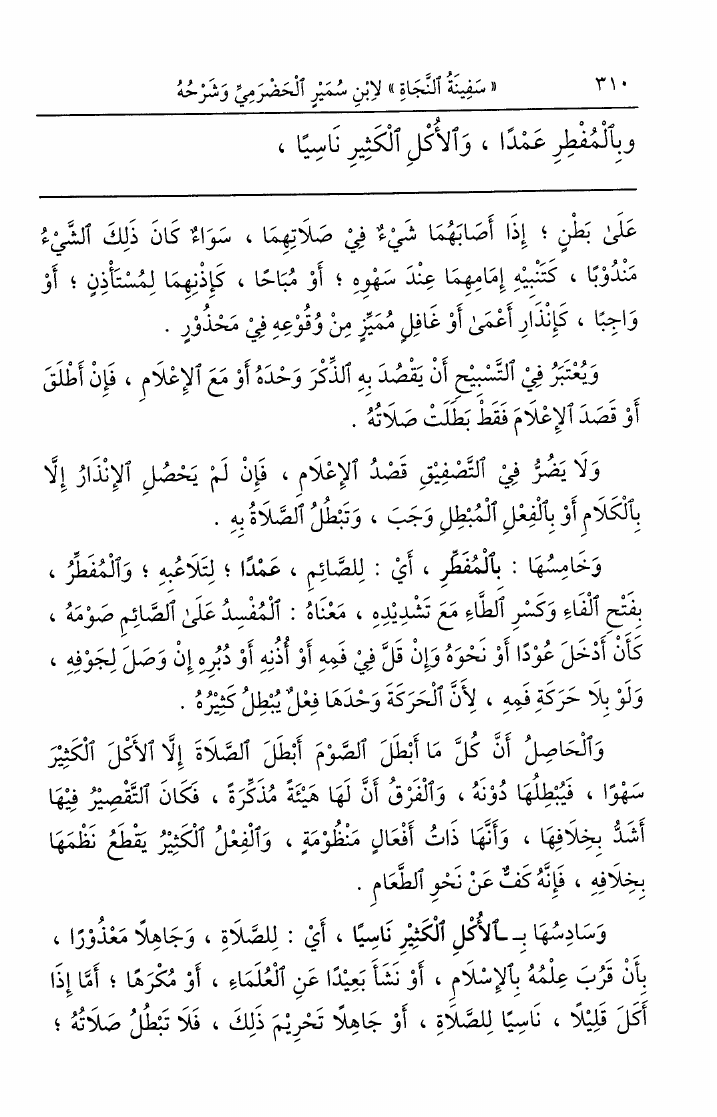 ٣١٠ « سَفِينَةُ ٱلنَّجَاةِ » لِابْنِ سُمَيْرٍ ٱلْحَضْرَمِيِّ وَشَرْحُهُ
وبِٱلْمُفْطِرِ عَمْدًا ، وَٱلأُكْلِ ٱلْكَثِيرِ نَاسِيًا ،
عَلَىٰ بَطْنٍ ؛ إِذَا أَصَابَهُمَا شَيْءٌ فِيْ صَلَاتِهِمَا ، سَوَاءٌ كَانَ ذَلِكَ ٱلشَّيْءُ
مَنْدُوْبًا ، كَتَنْبِيْهِ إِمَامِهِمَا عِنْدَ سَهْوِهِ ؛ أَوْ مُبَاحًا ، كَإِذْنِهِمَا لِمُسْتَأْذِنٍ ؛ أَوْ
وَاجِبًا ، كَإِنْذَارِ أَعْمَىٰ أَوْ غَافِلٍ مُمَيِّزٍ مِنْ وُقُوْعِهِ فِيْ مَحْذُوْرٍ .
وَيُعْتَبَرُ فِيْ ٱلتَّسْبِيْحِ أَنْ يَقْصُدَ بِهِ ٱلذِّكْرَ وَحْدَهُ أَوْ مَعَ ٱلإِعْلَامِ ، فَإِنْ أَطْلَقَ
أَوْ قَصَدَ ٱلإِعْلَامَ فَقَطْ بَطَلَتْ صَلَاتُهُ .
وَلَا يَضُرُّ فِيْ ٱلتَّصْفِيْقِ قَصْدُ ٱلإِعْلَامِ ، فَإِنْ لَمْ يَحْصُلِ ٱلإِنْذَارُ إِلَّا
بِٱلْكَلَامِ أَوْ بِٱلْفِعْلِ ٱلْمُبْطِلِ وَجَبَ ، وَتَبْطُلُ ٱلصَّلَاةُ بِهِ .
وَخَامِسُهَا : بِٱلْمُفَطِّرِ ، أَيْ : لِلصَّائِمِ ، عَمْدًا ؛ لِتَلَاعُبِهِ ؛ وَٱلْمُفَطِّرُ ،
بِفَتْحِ ٱلْفَاءِ وَكَسْرِ ٱلطَّاءِ مَعَ تَشْدِيْدِهِ ، مَعْنَاهُ : ٱلْمُفْسِدُ عَلَىٰ ٱلصَّائِمِ صَوْمَهُ ،
كَأَنْ أَدْخَلَ عُوْدًا أَوْ نَحْوَهُ وَإِنْ قَلَّ فِيْ فَمِهِ أَوْ أُذُنِهِ أَوْ دُبُرِهِ إِنْ وَصَلَ لِجَوْفِهِ ،
وَلَوْ بِلَا حَرَكَةِ فَمِهِ ، لِأَنَّ ٱلْحَرَكَةَ وَحْدَهَا فِعْلٌ يُبْطِلُ كَثِيْرُهُ .
وَٱلْحَاصِلُ أَنَّ كُلَّ مَا أَبْطَلَ ٱلصَّوْمَ أَبْطَلَ ٱلصَّلَاةَ إِلَّا ٱلأَكْلَ ٱلْكَثِيْرَ
سَهْوًا ، فَيُبْطِلُهَا دُوْنَهُ ، وَٱلْفَرْقُ أَنَّ لَهَا هَيْئَةً مُذَكِّرَةً ، فَكَانَ ٱلتَّقْصِيْرُ فِيْهَا
أَشَدُّ بِخِلَافِهَا ، وَأَنَّهَا ذَاتُ أَفْعَالٍ مَنْظُوْمَةٍ ، وَٱلْفِعْلُ ٱلْكَثِيْرُ يَقْطَعُ نَظْمَهَا
بِخِلَافِهِ ، فَإِنَّهُ كَفٌّ عَنْ نَحْوِ ٱلطَّعَامِ .
وَسَادِسُهَا بِـ ـٱلأُكْلِ ٱلْكَثِيْرِ نَاسِيًا ، أَيْ : لِلصَّلَاةِ ، وَجَاهِلًا مَعْذُوْرًا ،
بِأَنْ قَرُبَ عِلْمُهُ بِٱلإِسْلَامِ ، أَوْ نَشَأَ بَعِيْدًا عَنِ ٱلْعُلَمَاءِ ، أَوْ مُكْرَهًا ؛ أَمَّا إِذَا
أَكَلَ قَلِيْلًا ، نَاسِيًا لِلصَّلَاةِ ، أَوْ جَاهِلًا تَحْرِيْمَ ذَلِكَ ، فَلَا تَبْطُلُ صَلَاتُهُ ؛